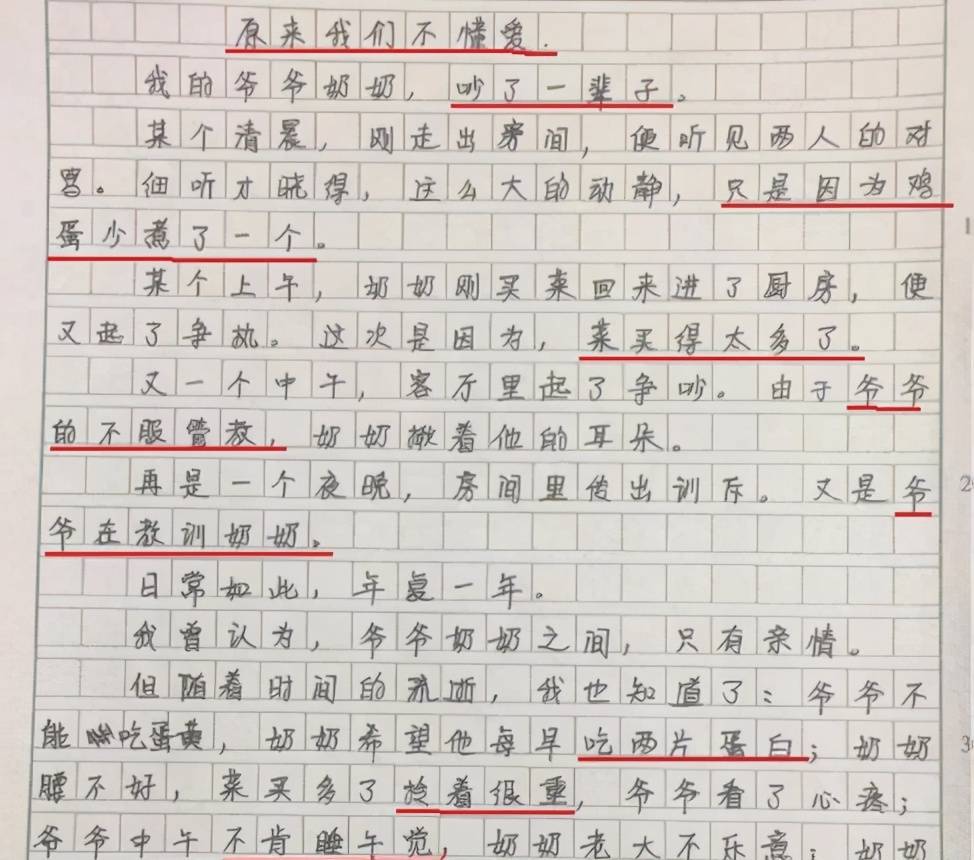 原来我们不懂爱.
我的爷爷奶奶，吵了一辈子。
某个清晨，刚走出房间，便听见两人的对
骂。细听才晓得，这么大的动静，只是因为鸡
蛋少煮了一个。
某个上午，奶奶刚买菜回来进了厨房，便
又起了争执。这次是因为，菜买得太多了。
又一个中午，客厅里起了争吵。由于爷爷
的不服管教，奶奶揪着他的耳朵。
再是一个夜晚，房间里传出训斥。又是爷
爷在教训奶奶。
日常如此，年复一年。
我曾认为，爷爷奶奶之间，只有亲情。
但随着时间的流逝，我也知道了：爷爷不
能吃蛋黄，奶奶希望他每早吃两片蛋白；奶奶
腰不好，菜买多了拎着很重，爷爷看了心疼；
爷爷中午不肯睡午觉，奶奶老大不乐意；奶奶
1
2
3